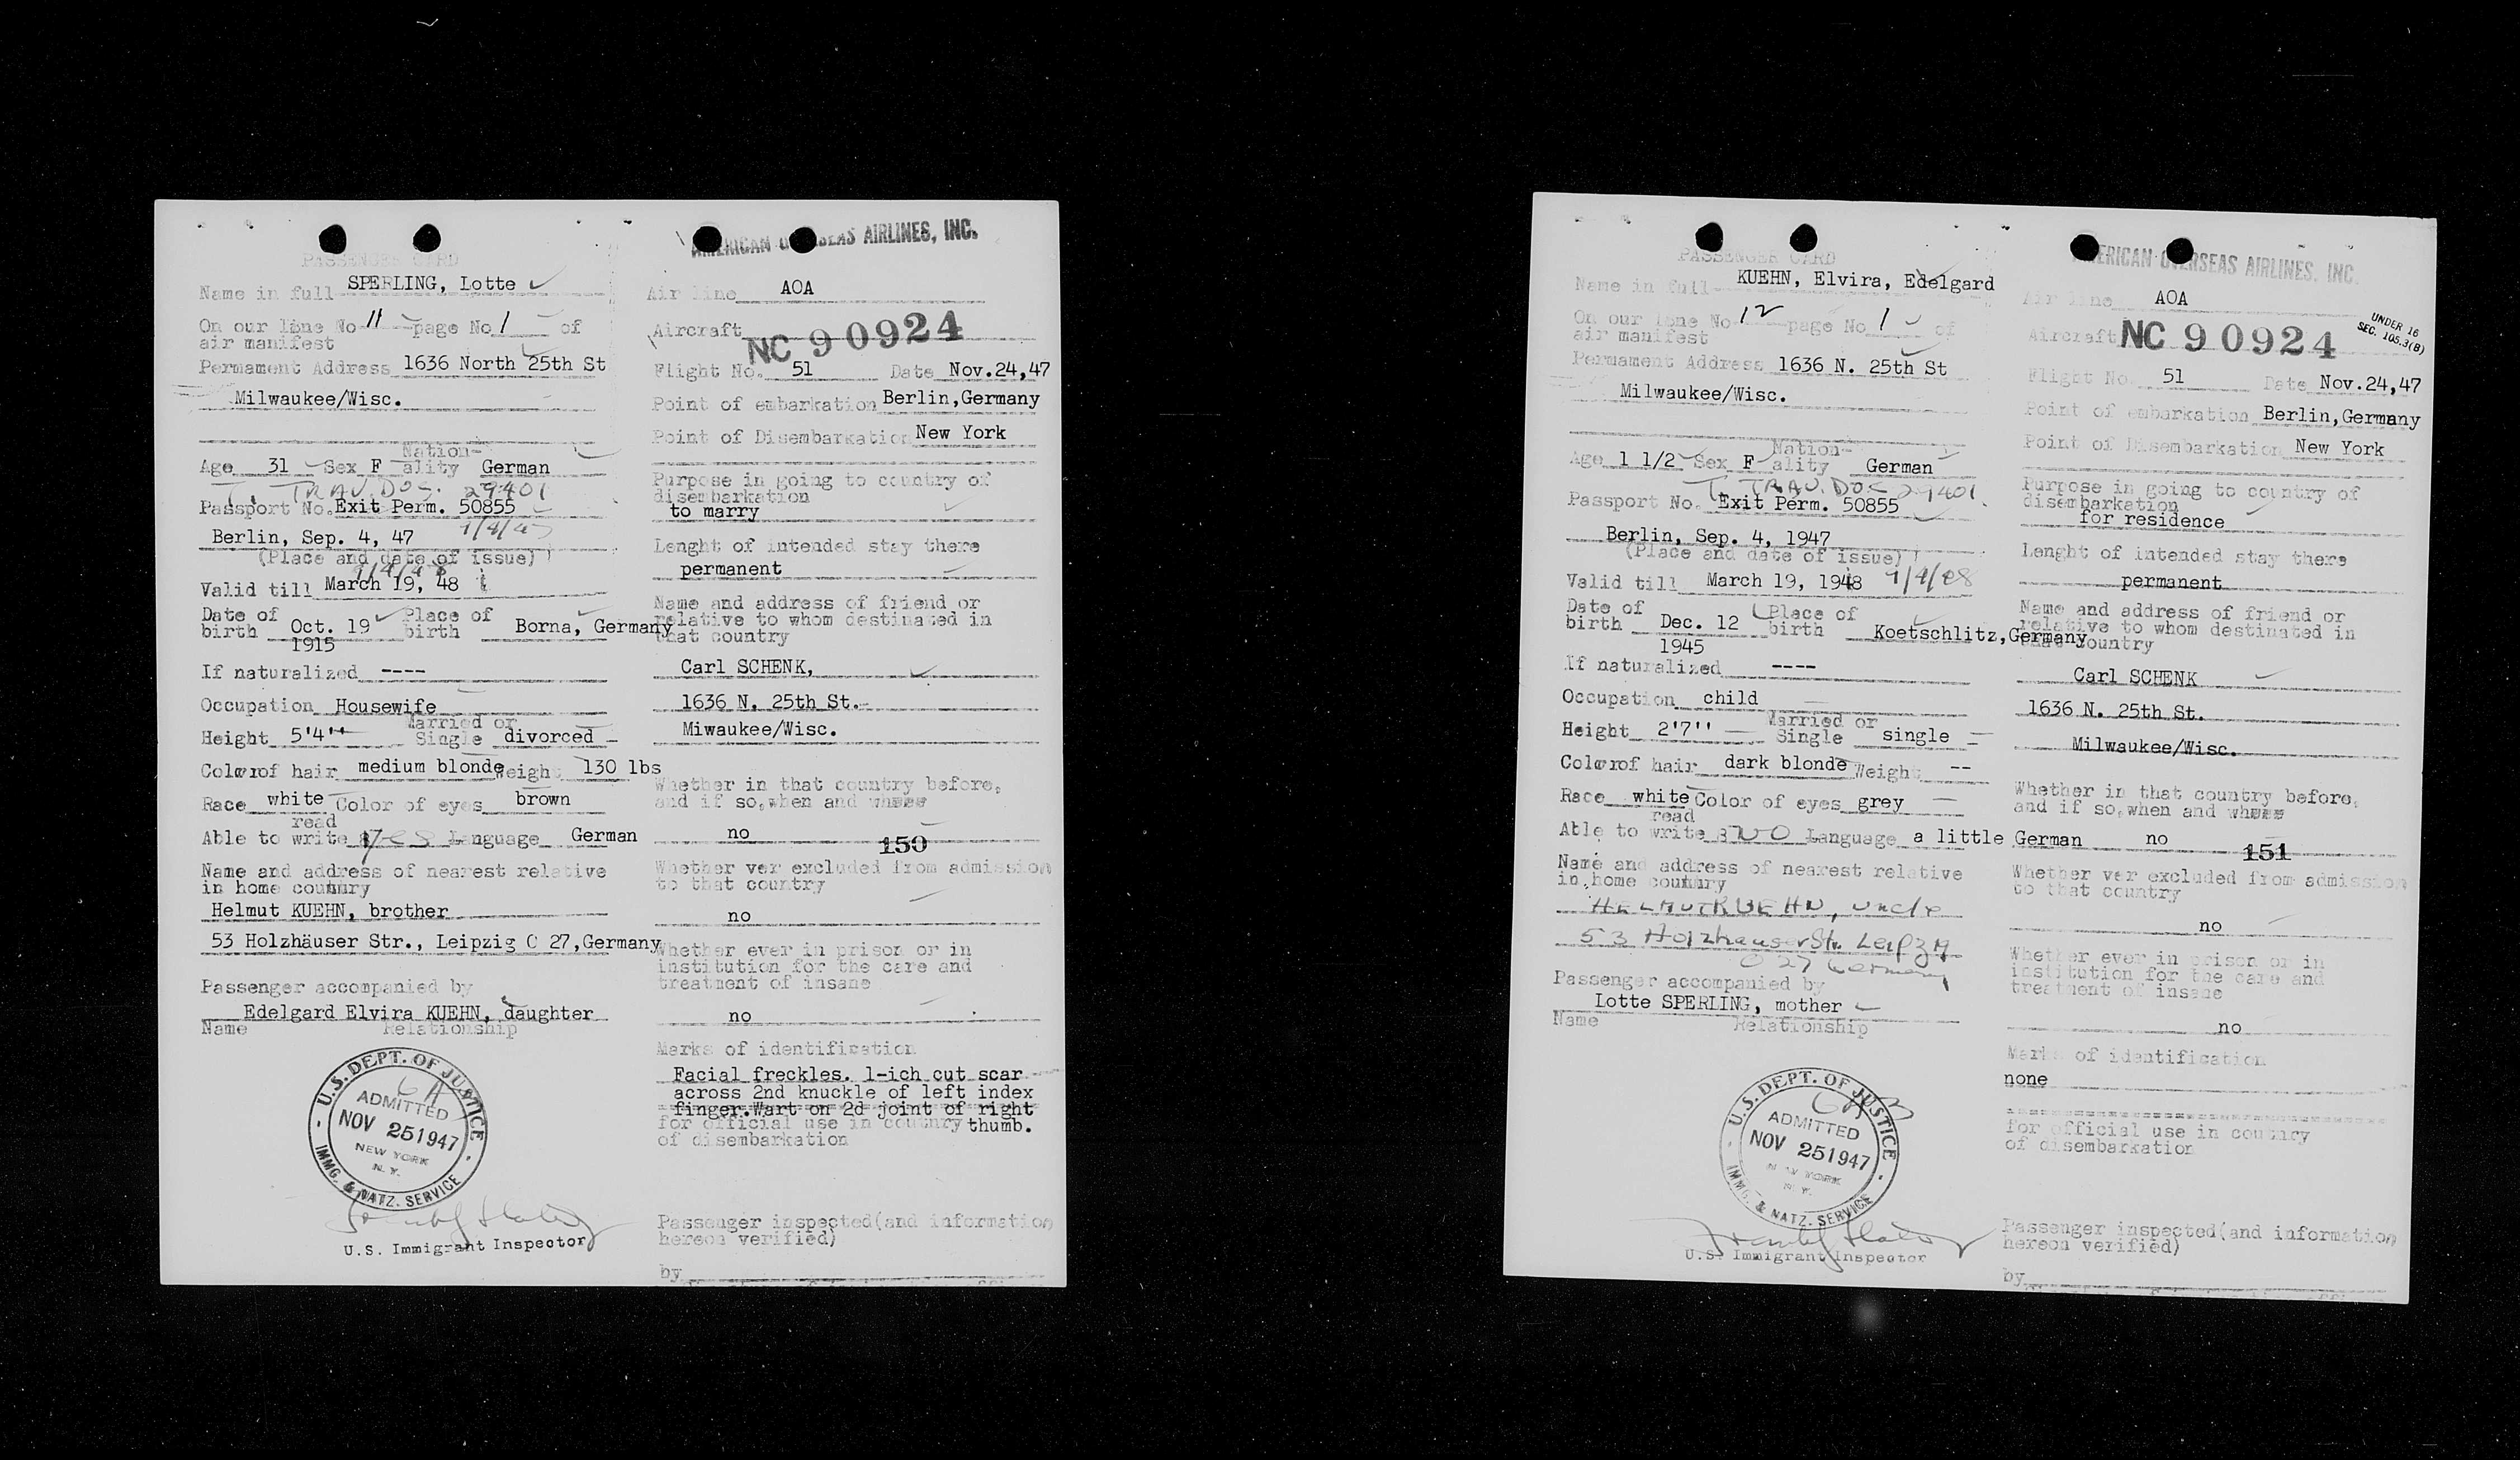 PASSENGER CARD
Name in full SPERLING, Lotte
On our line No 11 page No 1 of
air manifest
Permament Address 1636 North 25th St
Milwaukee/Wisc.
Nation-
Age 31 Sex F ality German
T. TRAV. DOC. 29401
Passport No. Exit Perm. 50855
Berlin, Sep. 4, 47 9/4/47
(Place and date of issue)
9/4/48
Valid till March 19, 48
Date of Place of
birth Oct. 19 birth Borna, Germany
1915
If naturalized ----
Occupation Housewife
Married or
Height 5'4'' Single divorced
Color of hair medium blonde Weight 130 lbs
Race white Color of eyes brown
read
Able to write yes Language German
Name and address of nearest relative
in home country
Helmut KUEHN, brother
53 Holzhäuser Str., Leipzig C 27, Germany
Passenger accompanied by
Edelgard Elvira KUEHN, daughter
Name Relationship
U.S. DEPT. OF JUSTICE
ADMITTED
NOV 25 1947
NEW YORK
N.Y.
IMMG. & NATZ. SERVICE
U.S. Immigrant Inspector
AMERICAN OVERSEAS AIRLINES, INC.
Air line AOA
Aircraft NC 90924
Flight No. 51 Date Nov.24,47
Point of embarkation Berlin, Germany
Point of Disembarkation New York
Purpose in going to country of
disembarkation
to marry
Lenght of intended stay there
permanent
Name and address of friend or
relative to whom destinated in
that country
Carl SCHENK,
1636 N. 25th St.
Miwaukee/Wisc.
Whether in that country before,
and if so, when and where
no 150
Whether ver excluded from admission
to that country
no
Whether ever in prison or in
institution for the care and
treatment of insane
no
Marks of identification
Facial freckles. 1-ich cut scar
across 2nd knuckle of left index
finger. Wart on 2d joint of right
for official use in coutnry thumb.
of disembarkation
Passenger inspected (and information
hereon verified)
by
PASSENGER CARD
Name in full KUEHN, Elvira, Edelgard
On our line No 12 page No 1 of
air manifest
Permament Address 1636 N. 25th St
Milwaukee/Wisc.
Nation-
Age 1 1/2 Sex F ality German
T. TRAV. DOC 29401
Passport No. Exit Perm. 50855
Berlin, Sep. 4, 1947
(Place and date of issue)
Valid till March 19, 1948 9/4/48
Date of Place of
birth Dec. 12 birth Koetschlitz, Germany
1945
If naturalized ----
Occupation child
Married or
Height 2'7'' Single single
Color of hair dark blonde Weight --
Race white Color of eyes grey
read
Able to write NO Language a little German
Name and address of nearest relative
in home country
HELMUT KUEHN, uncle
53 Holzhauser Str. Leipzig
C 27 Germany
Passenger accompanied by
Lotte SPERLING, mother
Name Relationship
U.S. DEPT. OF JUSTICE
ADMITTED
NOV 25 1947
NEW YORK
N.Y.
IMMG. & NATZ. SERVICE
U.S. Immigrant Inspector
AMERICAN OVERSEAS AIRLINES, INC.
Air line AOA
UNDER 16
SEC. 105.3(B)
Aircraft NC 90924
Flight No. 51 Date Nov.24,47
Point of embarkation Berlin, Germany
Point of Disembarkation New York
Purpose in going to country of
disembarkation
for residence
Lenght of intended stay there
permanent
Name and address of friend or
relative to whom destinated in
that country
Carl SCHENK
1636 N. 25th St.
Milwaukee/Wisc.
Whether in that country before,
and if so, when and where
no 151
Whether ver excluded from admission
to that country
no
Whether ever in prison or in
institution for the care and
treatment of insane
no
Marks of identification
none
for official use in coutnry
of disembarkation
Passenger inspected (and information
hereon verified)
by